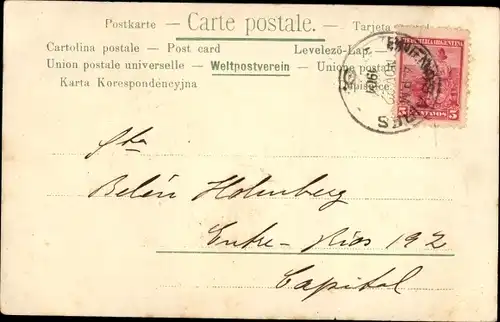 Postkarte — Carte postale. — Tarjeta
Cartolina postale — Post card Levelező-Lap
Union postale universelle — Weltpostverein — Unione postale
Karta Korespondencyjna
REPUBLICA ARGENTINA
5 5
Sta
Belén Holmberg
Entre-Rios 192
Capital